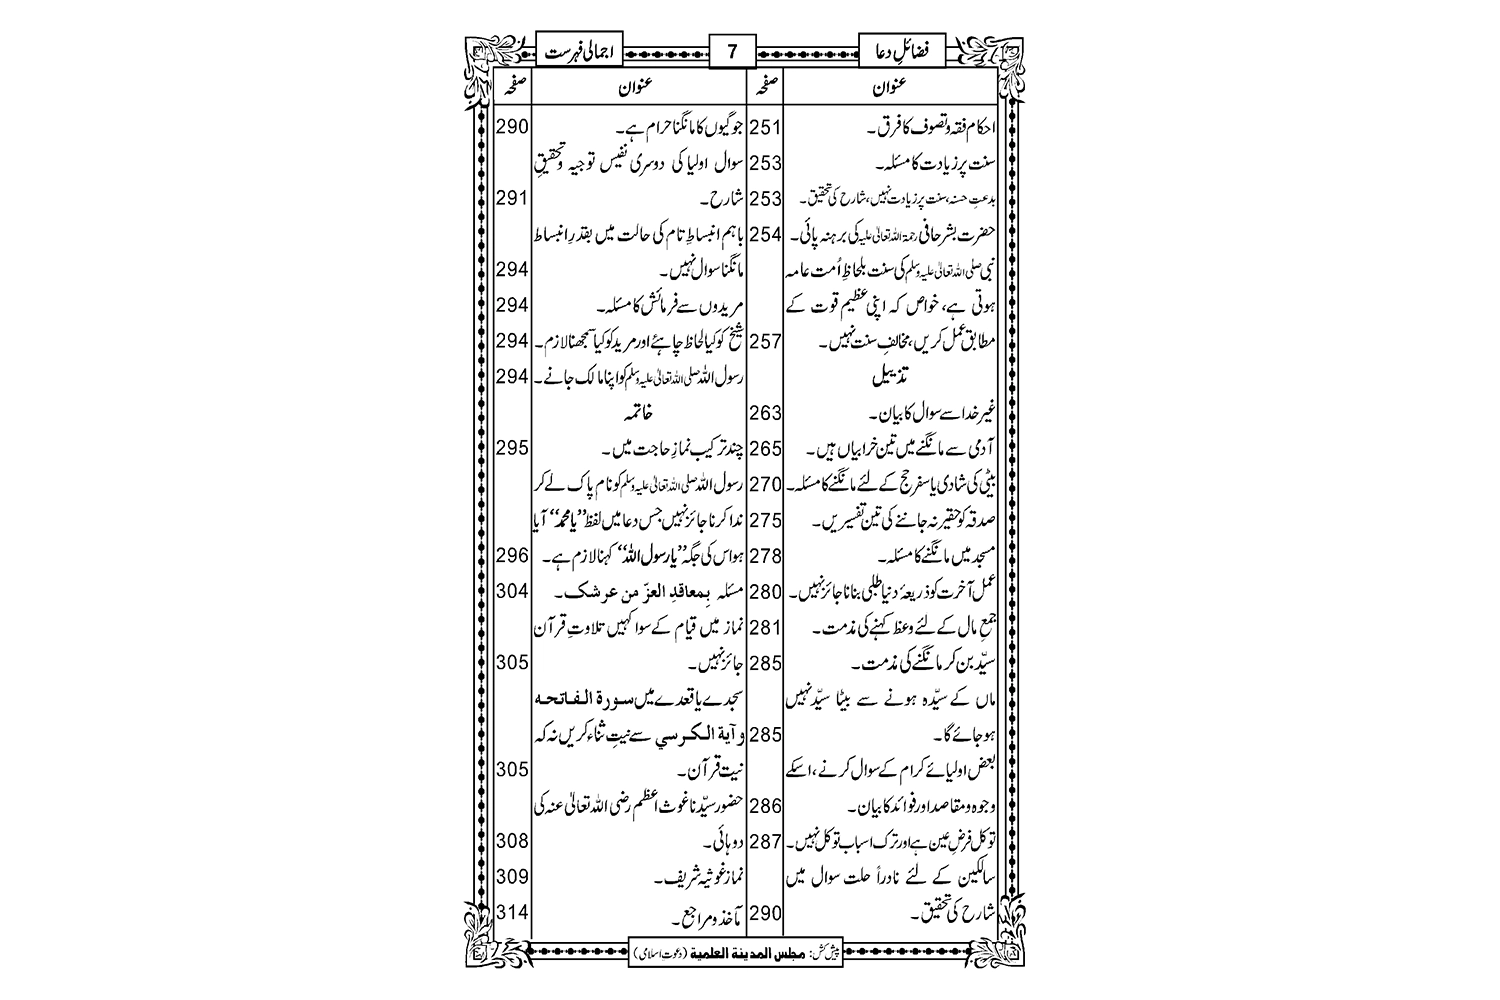 فضائلِ دعا 7 اجمالی فہرست
عنوان صفحہ
احکام فقہ و تصوف کا فرق۔ 251
سنت پر زیادت کا مسئلہ۔ 253
بدعتِ حسنہ، سنت پر زیادت نہیں، شارح کی تحقیق۔ 253
حضرت بشر حافی رحمۃ اللہ تعالیٰ علیہ کی برہنہ پائی۔ 254
نبی صلی اللہ تعالیٰ علیہ وسلم کی سنت بلحاظِ اُمت عامہ
ہوتی ہے، خواص کہ اپنی عظیم قوت کے
مطابق عمل کریں، مخالفِ سنت نہیں۔ 257
تذییل
غیر خدا سے سوال کا بیان۔ 263
آدمی سے مانگنے میں تین خرابیاں ہیں۔ 265
بیٹی کی شادی یا سفرِ حج کے لئے مانگنے کا مسئلہ۔ 270
صدقہ کو حقیر نہ جاننے کی تین تفسیریں۔ 275
مسجد میں مانگنے کا مسئلہ۔ 278
عمل آخرت کو ذریعۂ دنیا طلبی بنانا جائز نہیں۔ 280
جمعِ مال کے لئے وعظ کہنے کی مذمت۔ 281
سیّد بن کر مانگنے کی مذمت۔ 285
ماں کے سیّدہ ہونے سے بیٹا سیّد نہیں
ہو جائے گا۔ 285
بعض اولیائے کرام کے سوال کرنے، اسکے
وجوہ و مقاصد اور فوائد کا بیان۔ 286
توکل فرضِ عین ہے اور ترک اسباب توکل نہیں۔ 287
سالکین کے لئے نادراً حلت سوال میں
شارح کی تحقیق۔ 290
عنوان صفحہ
جوگیوں کا مانگنا حرام ہے۔ 290
سوال اولیا کی دوسری نفیس توجیہ وتحقیقِ
شارح۔ 291
باہم انبساطِ تام کی حالت میں بقدرِ انبساط
مانگنا سوال نہیں۔ 294
مریدوں سے فرمائش کا مسئلہ۔ 294
شیخ کو کیا لحاظ چاہئے اور مرید کو کیا سمجھنا لازم۔ 294
رسول اللہ صلی اللہ تعالیٰ علیہ وسلم کو اپنا مالک جانے۔ 294
خاتمہ
چند ترکیب نمازِ حاجت میں۔ 295
رسول اللہ صلی اللہ تعالیٰ علیہ وسلم کو نام پاک لے کر
ندا کرنا جائز نہیں جس دعا میں لفظ ”یا محمد“ آیا
ہو اس کی جگہ ”یا رسول اللہ“ کہنا لازم ہے۔ 296
مسئلہ بِمعاقدِ العزّ من عرشک۔ 304
نماز میں قیام کے سوا کہیں تلاوتِ قرآن
جائز نہیں۔ 305
سجدے یا قعدے میں سورۃ الفاتحه
و آیة الکرسي سے نیتِ ثناء کریں نہ کہ
نیت قرآن۔ 305
حضور سیّدنا غوث اعظم رضی اللہ تعالیٰ عنہ کی
دوہائی۔ 308
نماز غوثیہ شریف۔ 309
مآخذ و مراجع۔ 314
پیش کش: مجلس المدینة العلمیة (دعوتِ اسلامی)